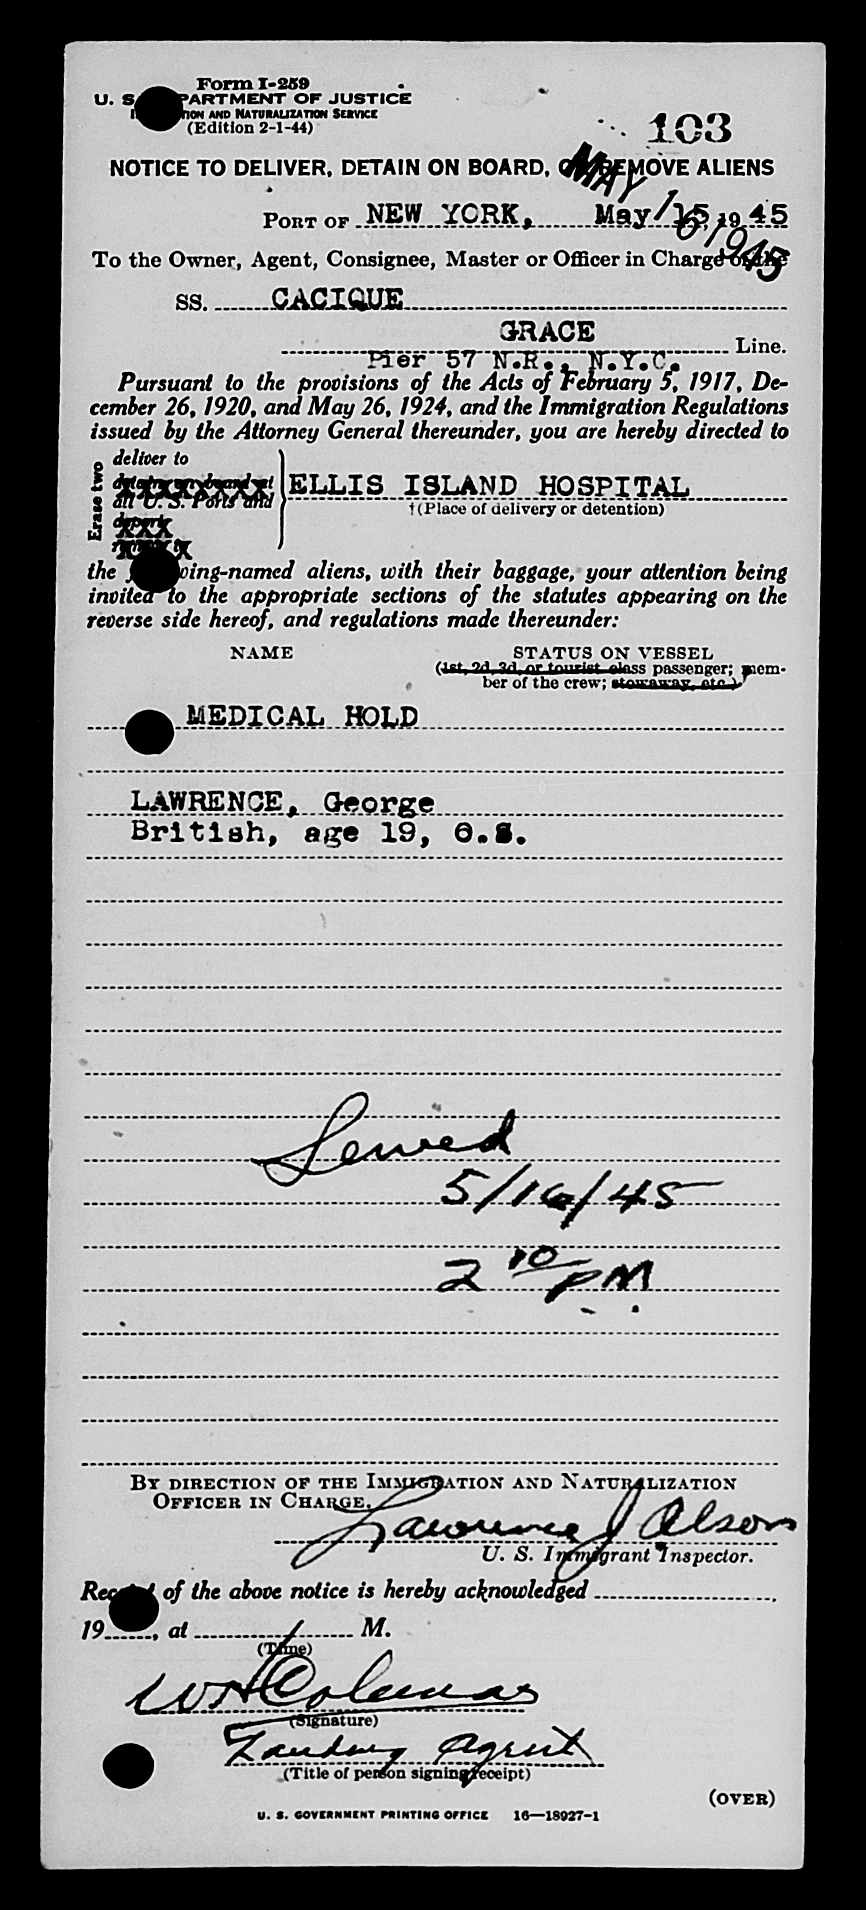 Form I-259
U. S. DEPARTMENT OF JUSTICE
IMMIGRATION AND NATURALIZATION SERVICE
(Edition 2-1-44)
103
NOTICE TO DELIVER, DETAIN ON BOARD, OR REMOVE ALIENS
MAY 16 1945
PORT OF NEW YORK, May 15, 19 45
To the Owner, Agent, Consignee, Master or Officer in Charge of the
SS. CACIQUE
GRACE Line.
Pier 57 N.R., N.Y.C.
Pursuant to the provisions of the Acts of February 5, 1917, De-
cember 26, 1920, and May 26, 1924, and the Immigration Regulations
issued by the Attorney General thereunder, you are hereby directed to
Erase two
deliver to
detain on board at
all U. S. Ports and
deport
ELLIS ISLAND HOSPITAL
†(Place of delivery or detention)
the following-named aliens, with their baggage, your attention being
invited to the appropriate sections of the statutes appearing on the
reverse side hereof, and regulations made thereunder:
NAME STATUS ON VESSEL
(1st, 2d, 3d, or tourist class passenger; mem-
ber of the crew; stowaway, etc.)
MEDICAL HOLD
LAWRENCE, George
British, age 19,
Served
5/16/45
2 10 PM
BY DIRECTION OF THE IMMIGRATION AND NATURALIZATION
OFFICER IN CHARGE.
Lawrence J Olson
U. S. Immigrant Inspector.
Receipt of the above notice is hereby acknowledged
19 , at M.
(Time)
W H Coleman
(Signature)
Landing Agent
(Title of person signing receipt)
(OVER)
U. S. GOVERNMENT PRINTING OFFICE 16—18927-1